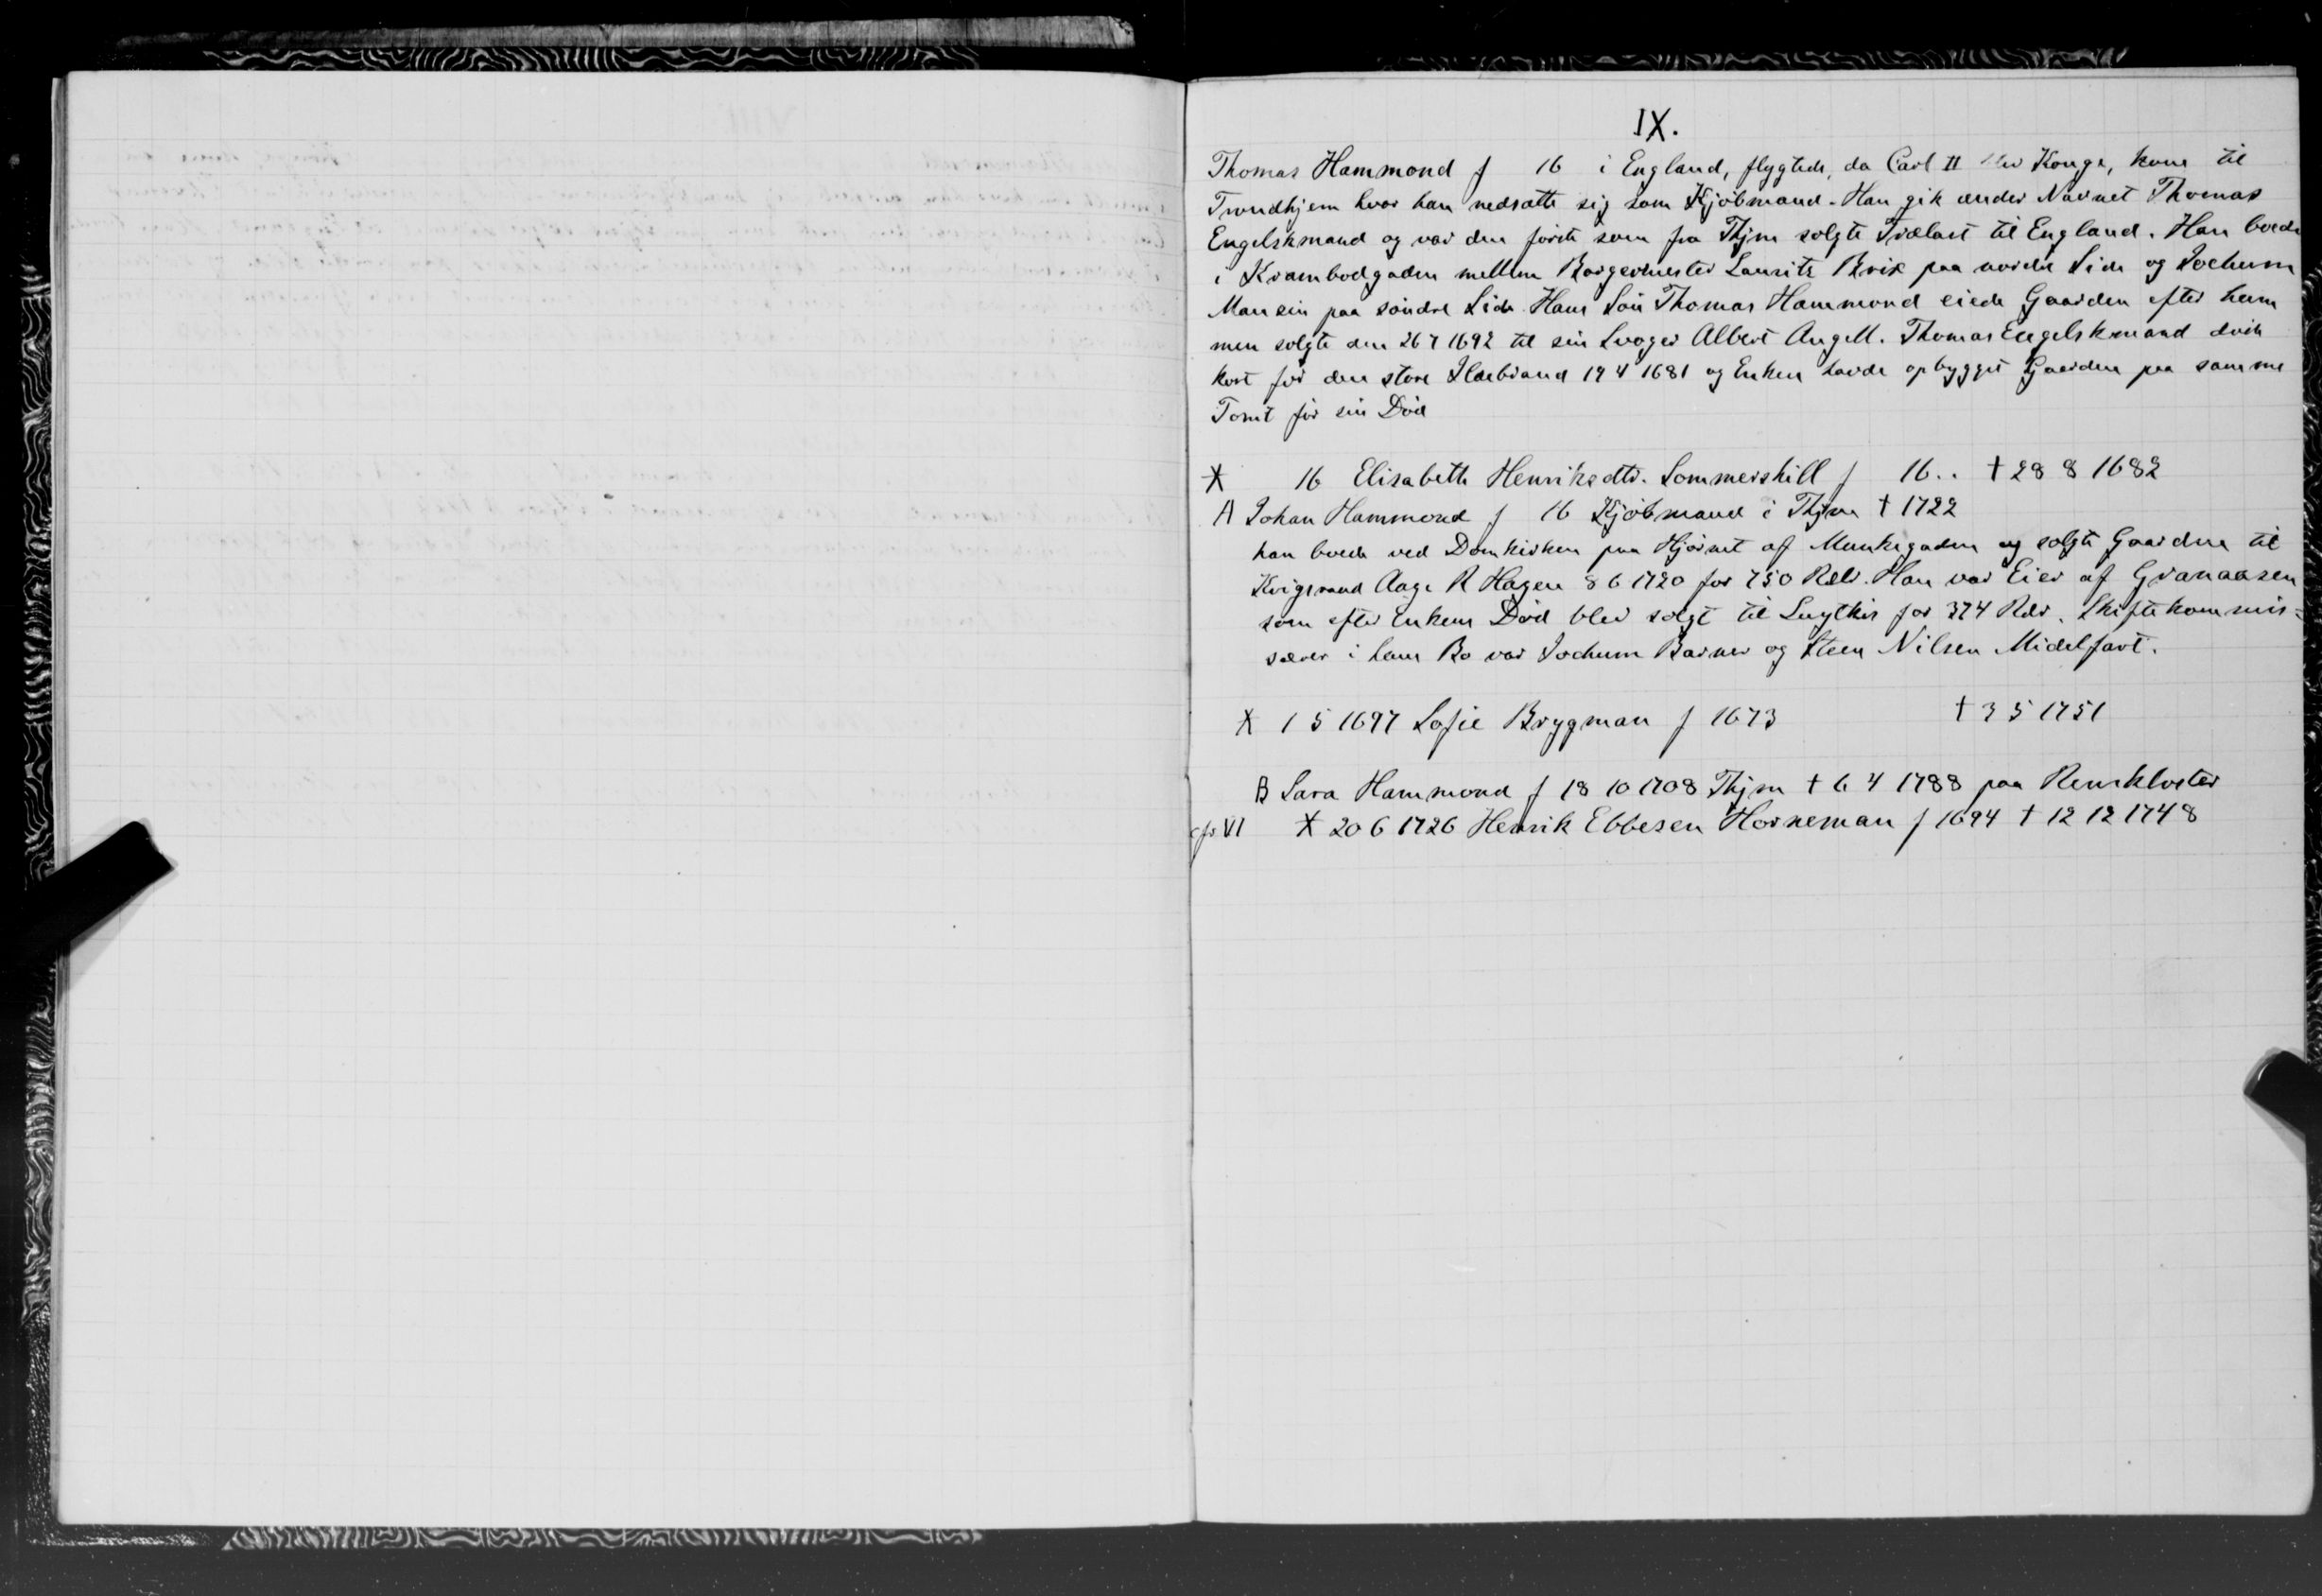 IX.
Thomas Hammond f 16 i England, flygtede, da Carl II blev Konge, kom til
Trondhjem hvor han nedsatte sig som Kjöbmand. Han gik under Navnet Thomas
Engelskmand og var den förste som fra Thjm solgte Trælast til England. Han boede
i Krambodgaden mellem Borgermester Laurits Brix paa nordre Side og Jochum
Mansin paa söndre Side. Hans Sön Thomas Hammond eiede Gaarden efter ham
men solgte den 26 7 1692 til sin Svoger Albert Angell. Thomas Engelskmand döde
kort för den store Ildebrand 19 4 1681 og Enken havde opbygget Gaarden paa samme
Tomt för sin Död
X 16 Elisabeth Henriksdtr. Sommershill f 16.. † 28 8 1682
A Johan Hammond f 16 Kjöbmand i Thjm † 1722
han boede ved Domkirken paa Hjörnet af Munkegaden og solgte Gaarden til
Aage R Hagen 8 6 1720 for 750 Rdlr. Han var Eier af Granaasen
som efter Enkens Död blev solgt til for 374 Rdr. Skiftekommis-
særer i hans Bo var Jochum Barner og Steen Nilsen Midelfart.
X 1 5 1697 Sofie Brygman f 1673 † 3 5 1751
B Sara Hammond f 18 10 1708 Thjm † 6 4 1788 paa Reinskloster
cfr VI X 20 6 1726 Henrik Ebbesen Horneman f 1694 † 12 12 1748